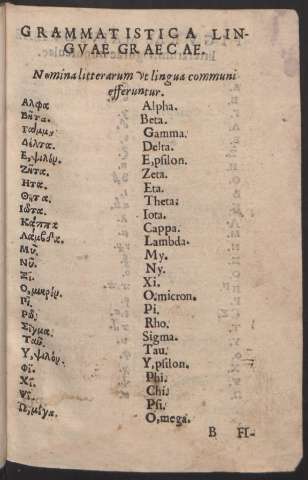 GRAMMATISTICA LIN-
GVAE GRAECAE.
Nomina litterarum vt lingua communi
efferuntur.
Αλφα Alpha.
Βῆτα. Beta.
Γάμμα. Gamma.
Δέλτα. Delta.
Ε,ψιλόν. E,psilon.
Ζῆτα. Zeta.
Ητα. Eta.
Θῆτα. Theta:
Ιῶτα. Iota.
Κάππα Cappa.
Λάμβδα. Lambda.
Μῦ. My.
Νῦ. Ny.
Ξῖ. Xi.
Ο,μικρόν. O,micron.
Πῖ. Pi.
Ρῶ: Rho.
Σίγμα. Sigma.
Ταῦ. Tau.
Υ,ψιλόν. Y,psilon.
Φῖ. Phi.
Χῖ. Chi.
Ψῖ. Psi.
Ω,μέγα. O,mega.
B FI-